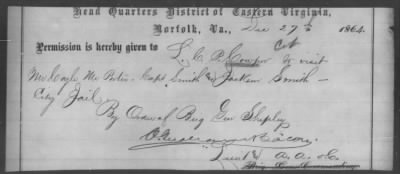 Head Quarters District of Eastern Virginia,
Norfolk, Va., Dec 27th 1864.
Permission is hereby given to L. C. P. Cowper to visit
Mr Cayle, Mr Potin, Capt Smith & Jackson Smith —
City Jail.
By Order of Brig Gen Shepley
Lieut & A. A. A. G.